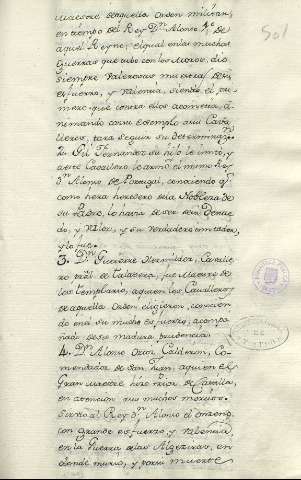 Maestre de aquella Orden militar,
en tiempo del Rey Dn. Alonso 4º. de
aquel Reyno; el qual en las muchas
Guerras que tubo con los Moros, dio
siempre valerosas muestras de su
esfuerzo, y valentia, siendo el pri-
mero que contra ellos acometia, a-
nimando con su exemplo a sus Cava-
lleros, para seguir su determinazn.
2. Gil Frz. Fernandez su hijo le imitó, y
a este Cavallero le armó el mismo Rey
Dn. Alonso de Portugal, conociendo qe.
como hera heredero de la Nobleza de
su Padre, lo havia de ser de su Denue-
do, y valor, y su verdadero imitador,
y lo fue.
3. Dn. Gutierre Hermildez, Cavalle-
ro de Talavera, fue Maestre de
los Templarios, a quien los Cavalleros
de aquella Orden eligieron, conocien-
do en el su mucho esfuerzo, acompa-
ñado de su madura prudencia.
4. Dn. Alonso Ortiz Calderon, Co-
mendador de San Juan, a quien el
Gran Maestre hizo Prior de Castilla,
en atencion a sus muchos meritos.
Sirvio al Rey Dn. Alonso el onzeno,
con grande esfuerzo, y valencia,
en la Guerra de las Algeziras, en
donde murio, y por su muerte
501